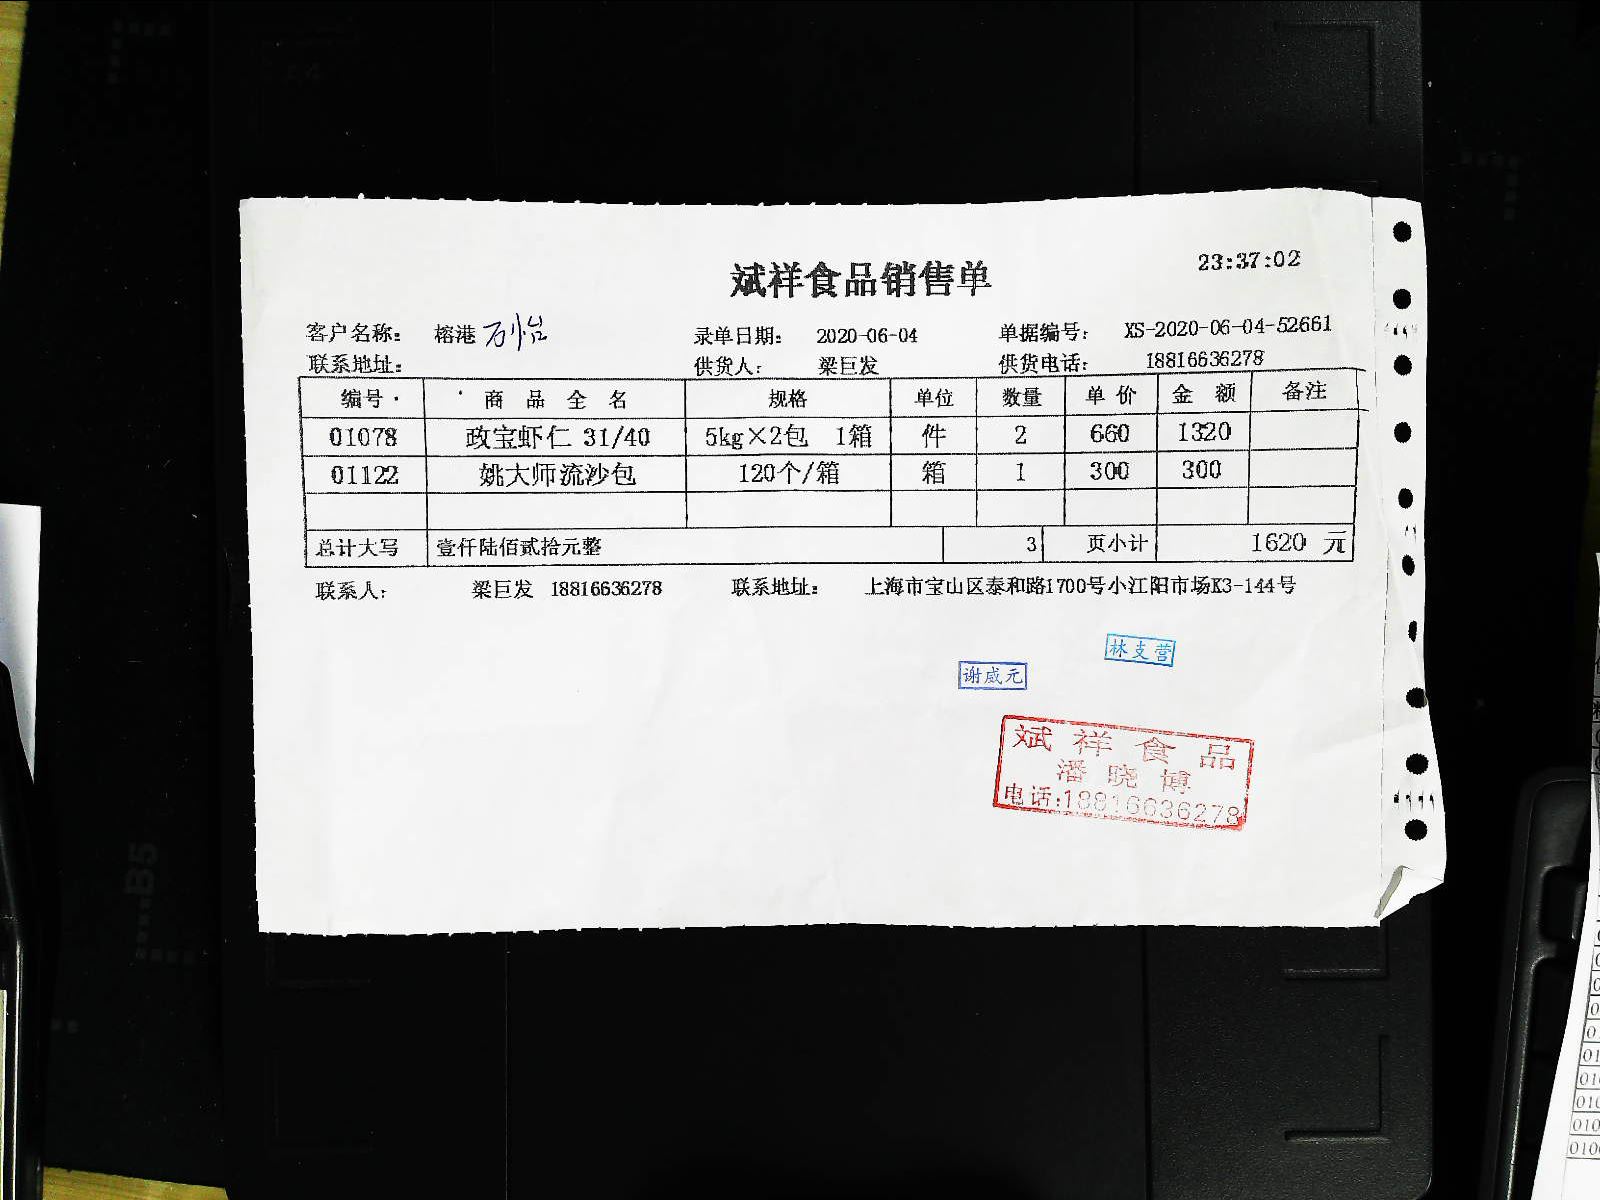 斌祥食品销售单
23:37:02
客户名称： 榕港 万怡 录单日期： 2020-06-04 单据编号： XS-2020-06-04-52661
联系地址： 供货人： 梁巨发 供货电话： 18816636278
编号 商品全名 规格 单位 数量 单价 金额 备注
01078 政宝虾仁 31/40 5kg×2包 1箱 件 2 660 1320
01122 姚大师流沙包 120个/箱 箱 1 300 300
总计大写 壹仟陆佰贰拾元整 3 页小计 1620 元
联系人： 梁巨发 18816636278 联系地址： 上海市宝山区泰和路1700号小江阳市场K3-144号
林支营
谢咸元
斌祥食品
潘晓博
电话:18816636278
B5